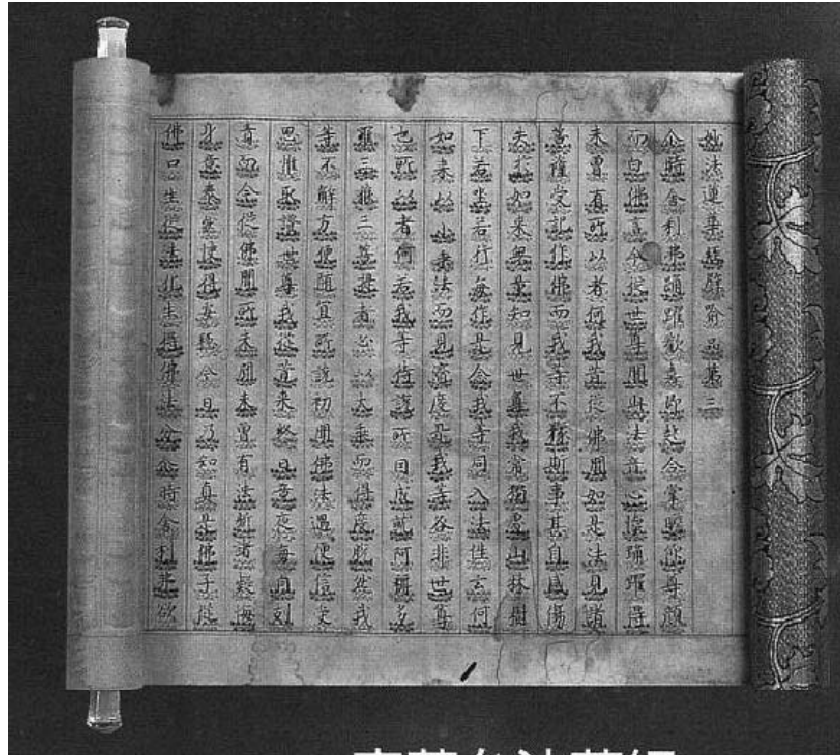 妙法蓮華經譬喻品第三
尒時舍利弗踊躍歡喜即起合掌瞻仰尊顏
而白佛言今從世尊聞此法音心懷踊躍得
未曾有所以者何我昔從佛聞如是法見諸
菩薩受記作佛而我等不豫斯事甚自感傷
失於如來無量知見世尊我常獨處山林樹
下若坐若行每作是念我等同入法性云何
如來以小乘法而見濟度是我等咎非世尊
也所以者何若我等待說所因成就阿耨多
羅三藐三菩提者必以大乘而得度脫然我
等不解方便隨宜所說初聞佛法遇便信受
思惟取證世尊我從昔來終日竟夜每自剋
責而今從佛聞所未聞未曾有法斷諸疑悔
身意泰然快得安隱今日乃知真是佛子從
佛口生從法化生得佛法分尒時舍利弗欲